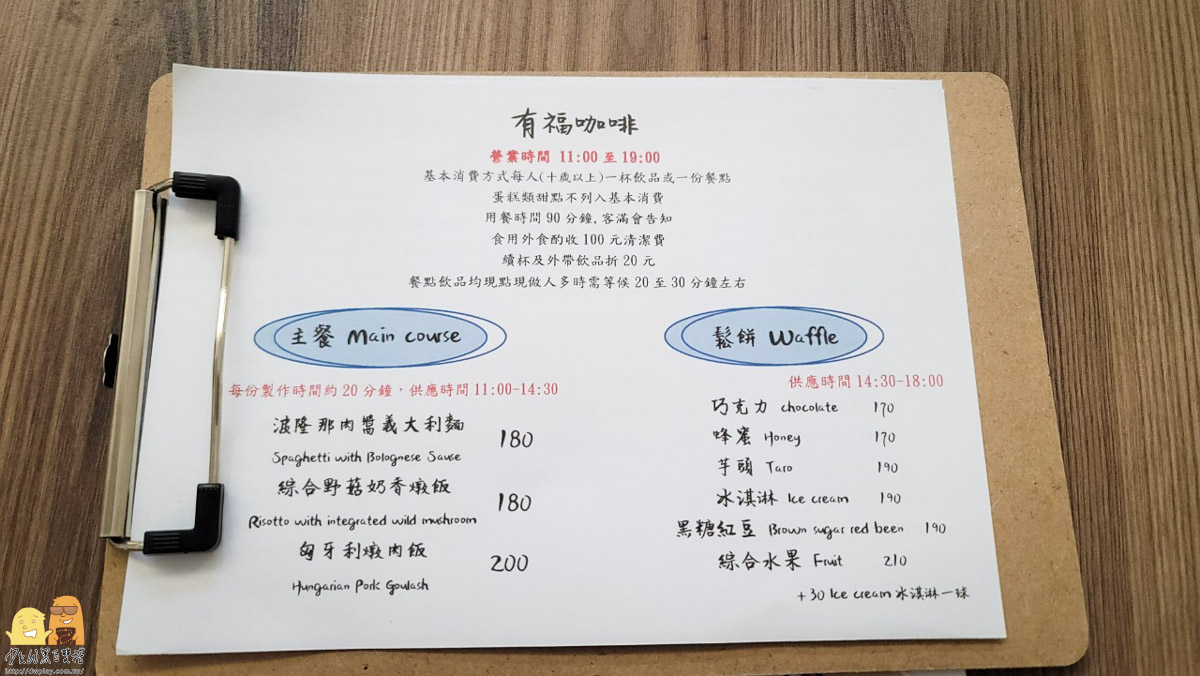 有福咖啡
營業時間 11:00 至 19:00
基本消費方式每人(十歲以上)一杯飲品或一份餐點
蛋糕類甜點不列入基本消費
用餐時間 90 分鐘,客滿會告知
食用外食酌收 100 元清潔費
續杯及外帶飲品折 20 元
餐點飲品均現點現做人多時需等候 20 至 30 分鐘左右
主餐 Main course
每份製作時間約 20 分鐘，供應時間 11:00-14:30
波隆那肉醬義大利麵 180
Spaghetti with Bolognese Sause
綜合野菇奶香燉飯 180
Risotto with integrated wild mushroom
匈牙利燉肉飯 200
Hungarian Pork Goulash
鬆餅 Waffle
供應時間 14:30-18:00
巧克力 chocolate 170
蜂蜜 Honey 170
芋頭 Taro 190
冰淇淋 Ice cream 190
黑糖紅豆 Brown sugar red been 190
綜合水果 Fruit 210
+30 Ice cream 冰淇淋一球
http://dwplay.com.tw/